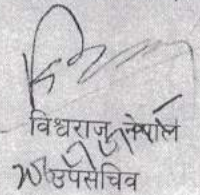 विश्वराजु नेपाल
उपसचिव